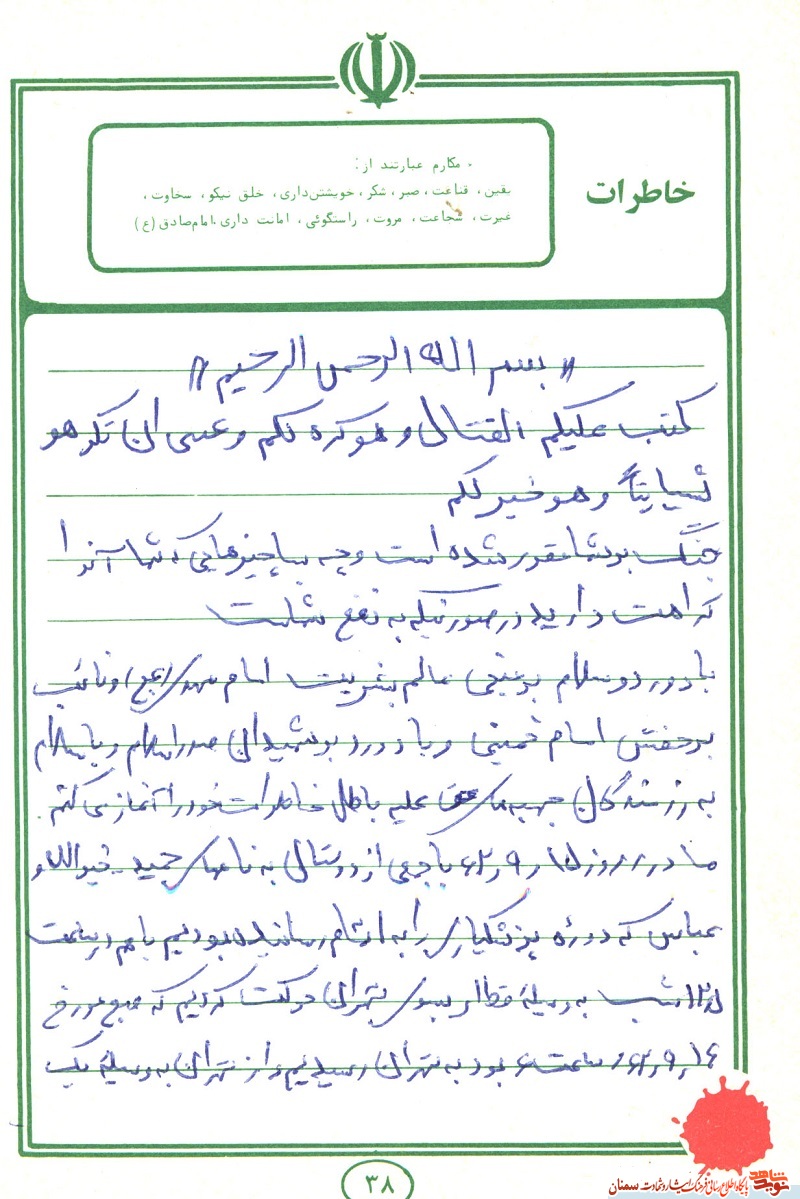 خاطرات
- مکارم عبارتند از:
یقین، قناعت، صبر، شکر، خویشتن‌داری، خلق نیکو، سخاوت،
غیرت، شجاعت، مروت، راستگوئی، امانت داری.امام صادق (ع)
«بسم الله الرحمن الرحیم»
کتب علیکم القتال و هو کره لکم و عسی ان تکرهو
شیایتاً و هو خیر لکم
جنگ بر شما مقرر شده است و چه بسا چیزهایی که شما آنرا
کراهت دارید در صورتیکه به نفع شماست
با درود و سلام بر منجی عالم بشریت امام مهدی (عج) و نائب
بر حقش امام خمینی و با درود بر شهیدان صدر اسلام و با سلام
به رزمندگان جبهه‌های حق علیه باطل خاطرات خود را آغاز می کنم.
ما در روز ۱۵ر۹ر۶۲ با جمعی از دوستان به نامهای حمید - خیرالله و
عباس که دوره پزشکیاری را به اتمام رسانیده بودیم با هم در ساعت
شب به وسیلهٔ قطار بسوی تهران حرکت کردیم که صبح مورخ
۱۶ر۹ر۶۲ ساعت ۶ بود به تهران رسیدیم و از تهران به وسیلهٔ یک
۳۸
نوید شاهد
پایگاه اطلاع رسانی فرهنگ ایثار و شهادت سمنان